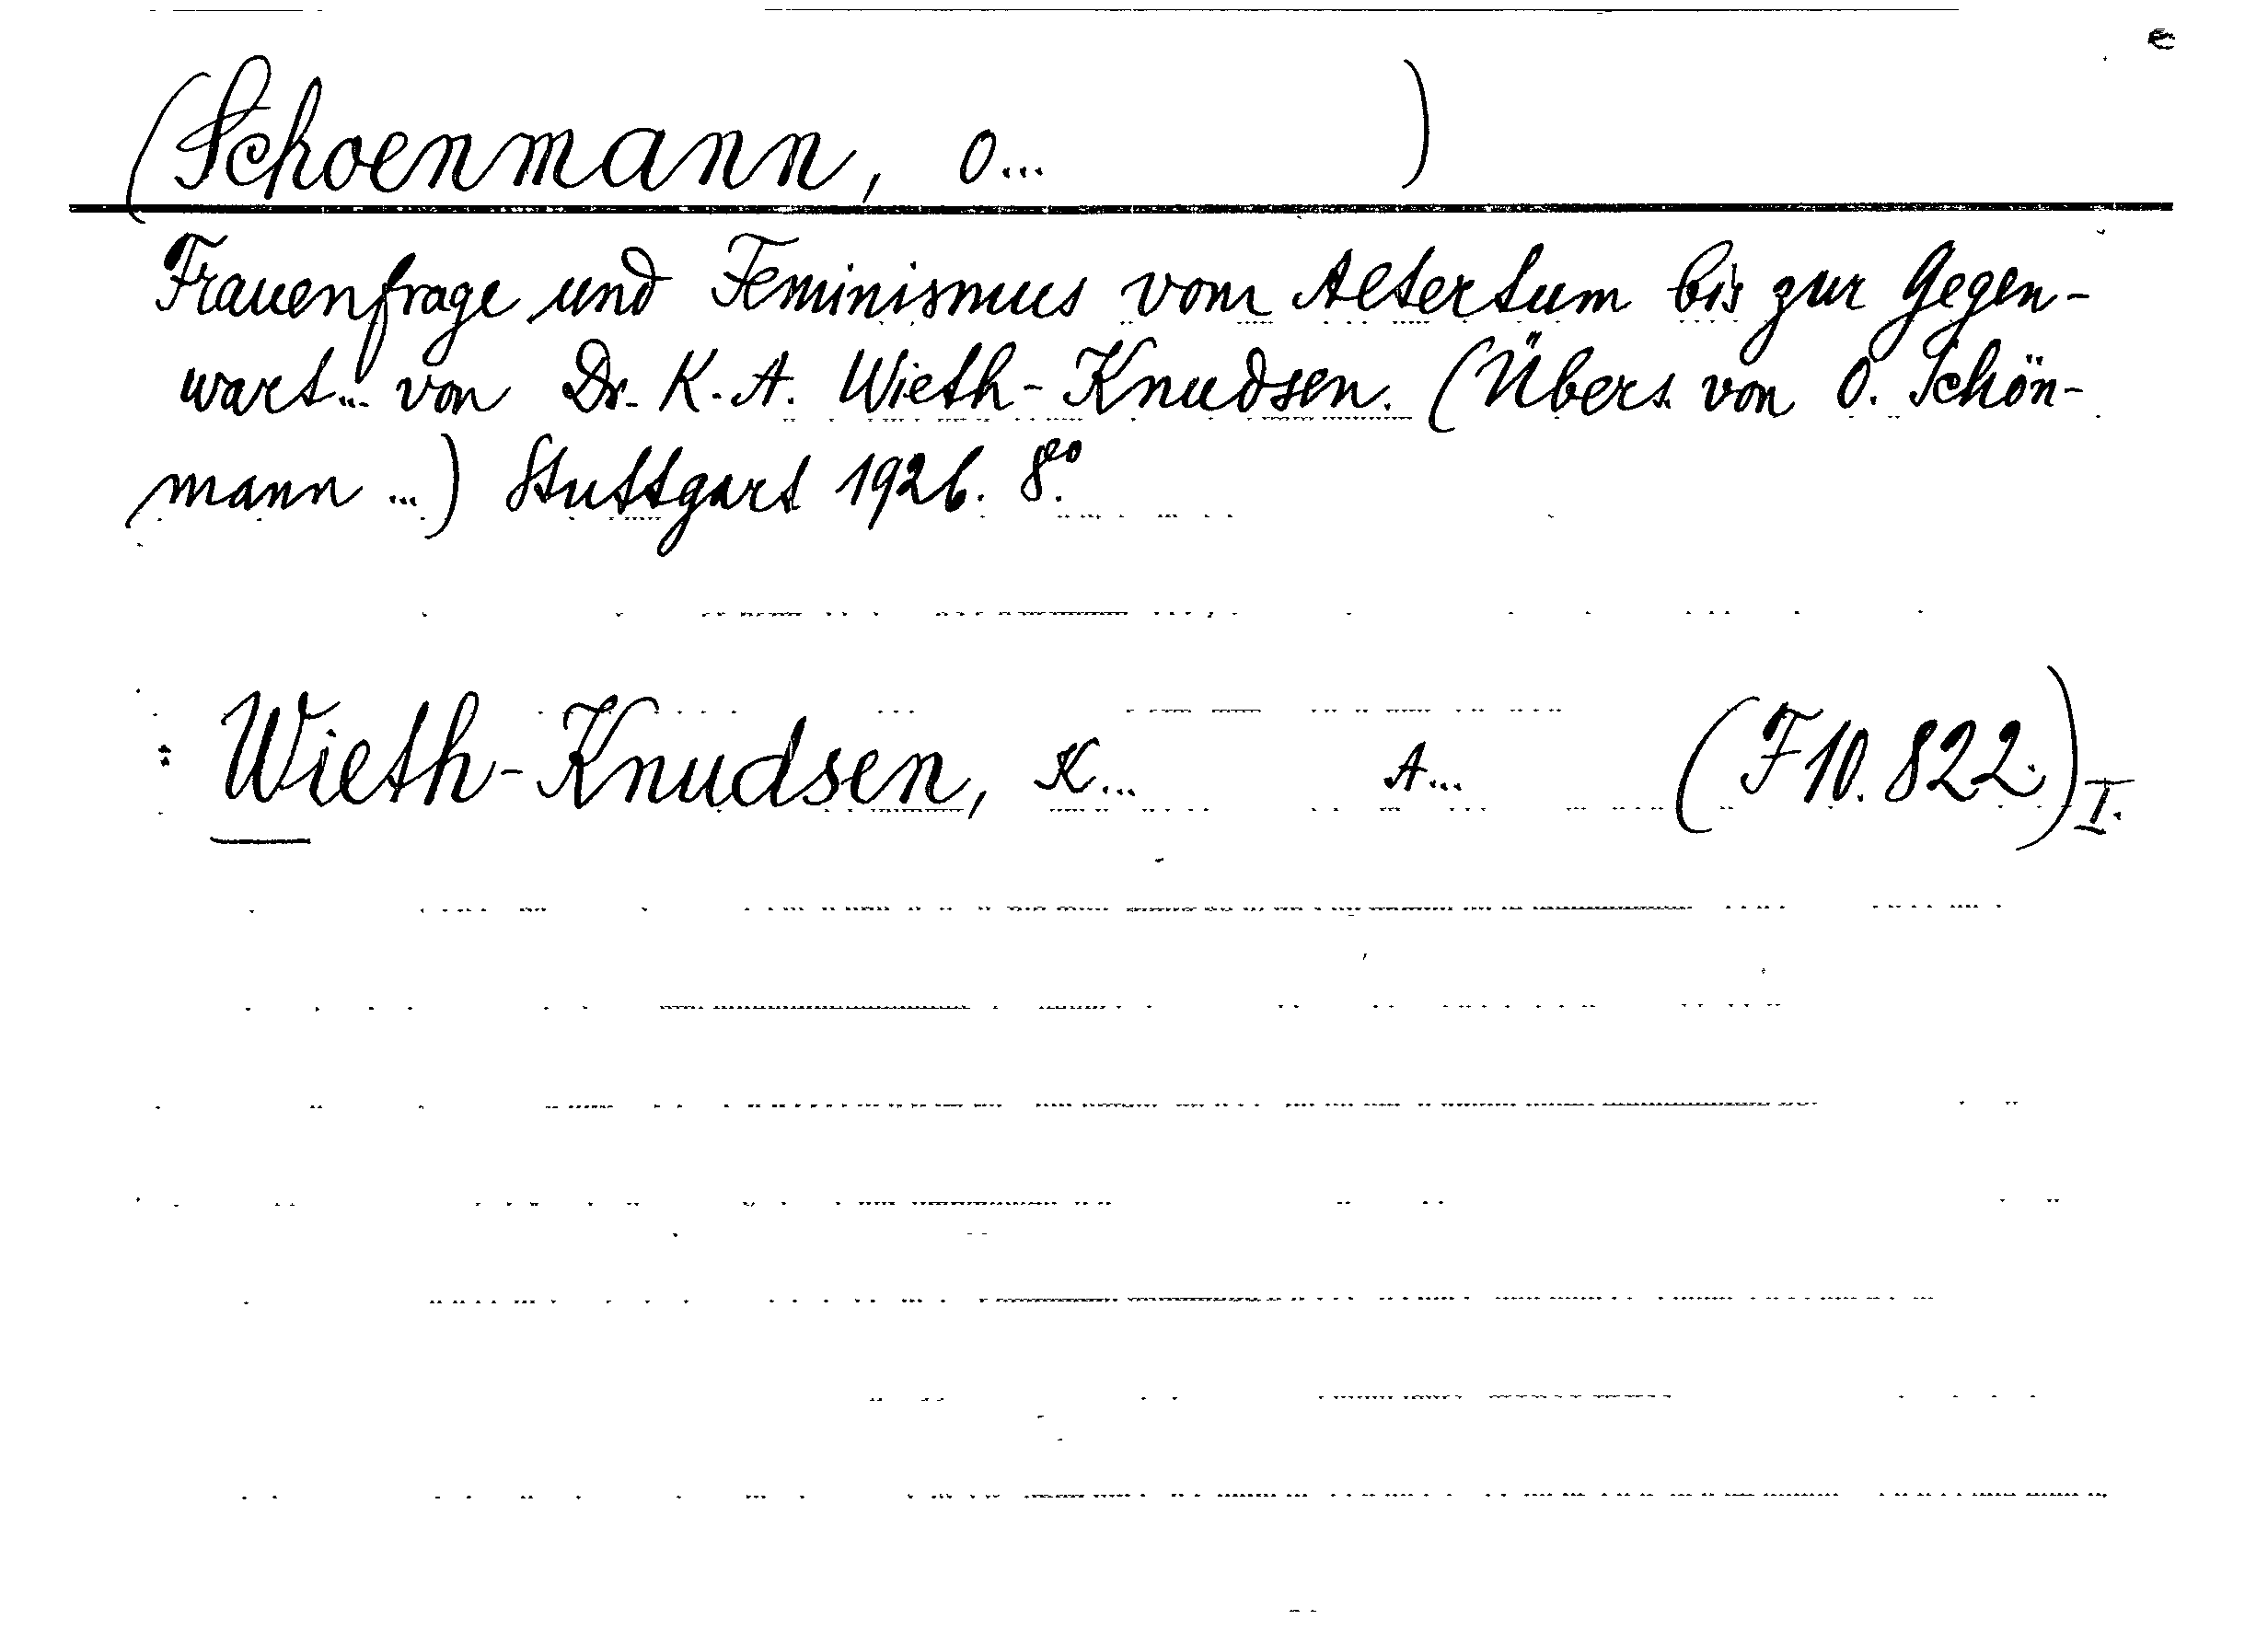 (Schoenmann, O... )
Frauenfrage und Feminismus vom Altertum bis zur Gegen-
wart... von Dr. K. A. Wieth-Knudsen. (Übers. von O. Schön-
mann ...) Stuttgart 1926. 8°.
: Wieth-Knudsen, K... A... (F 10.822.) I.